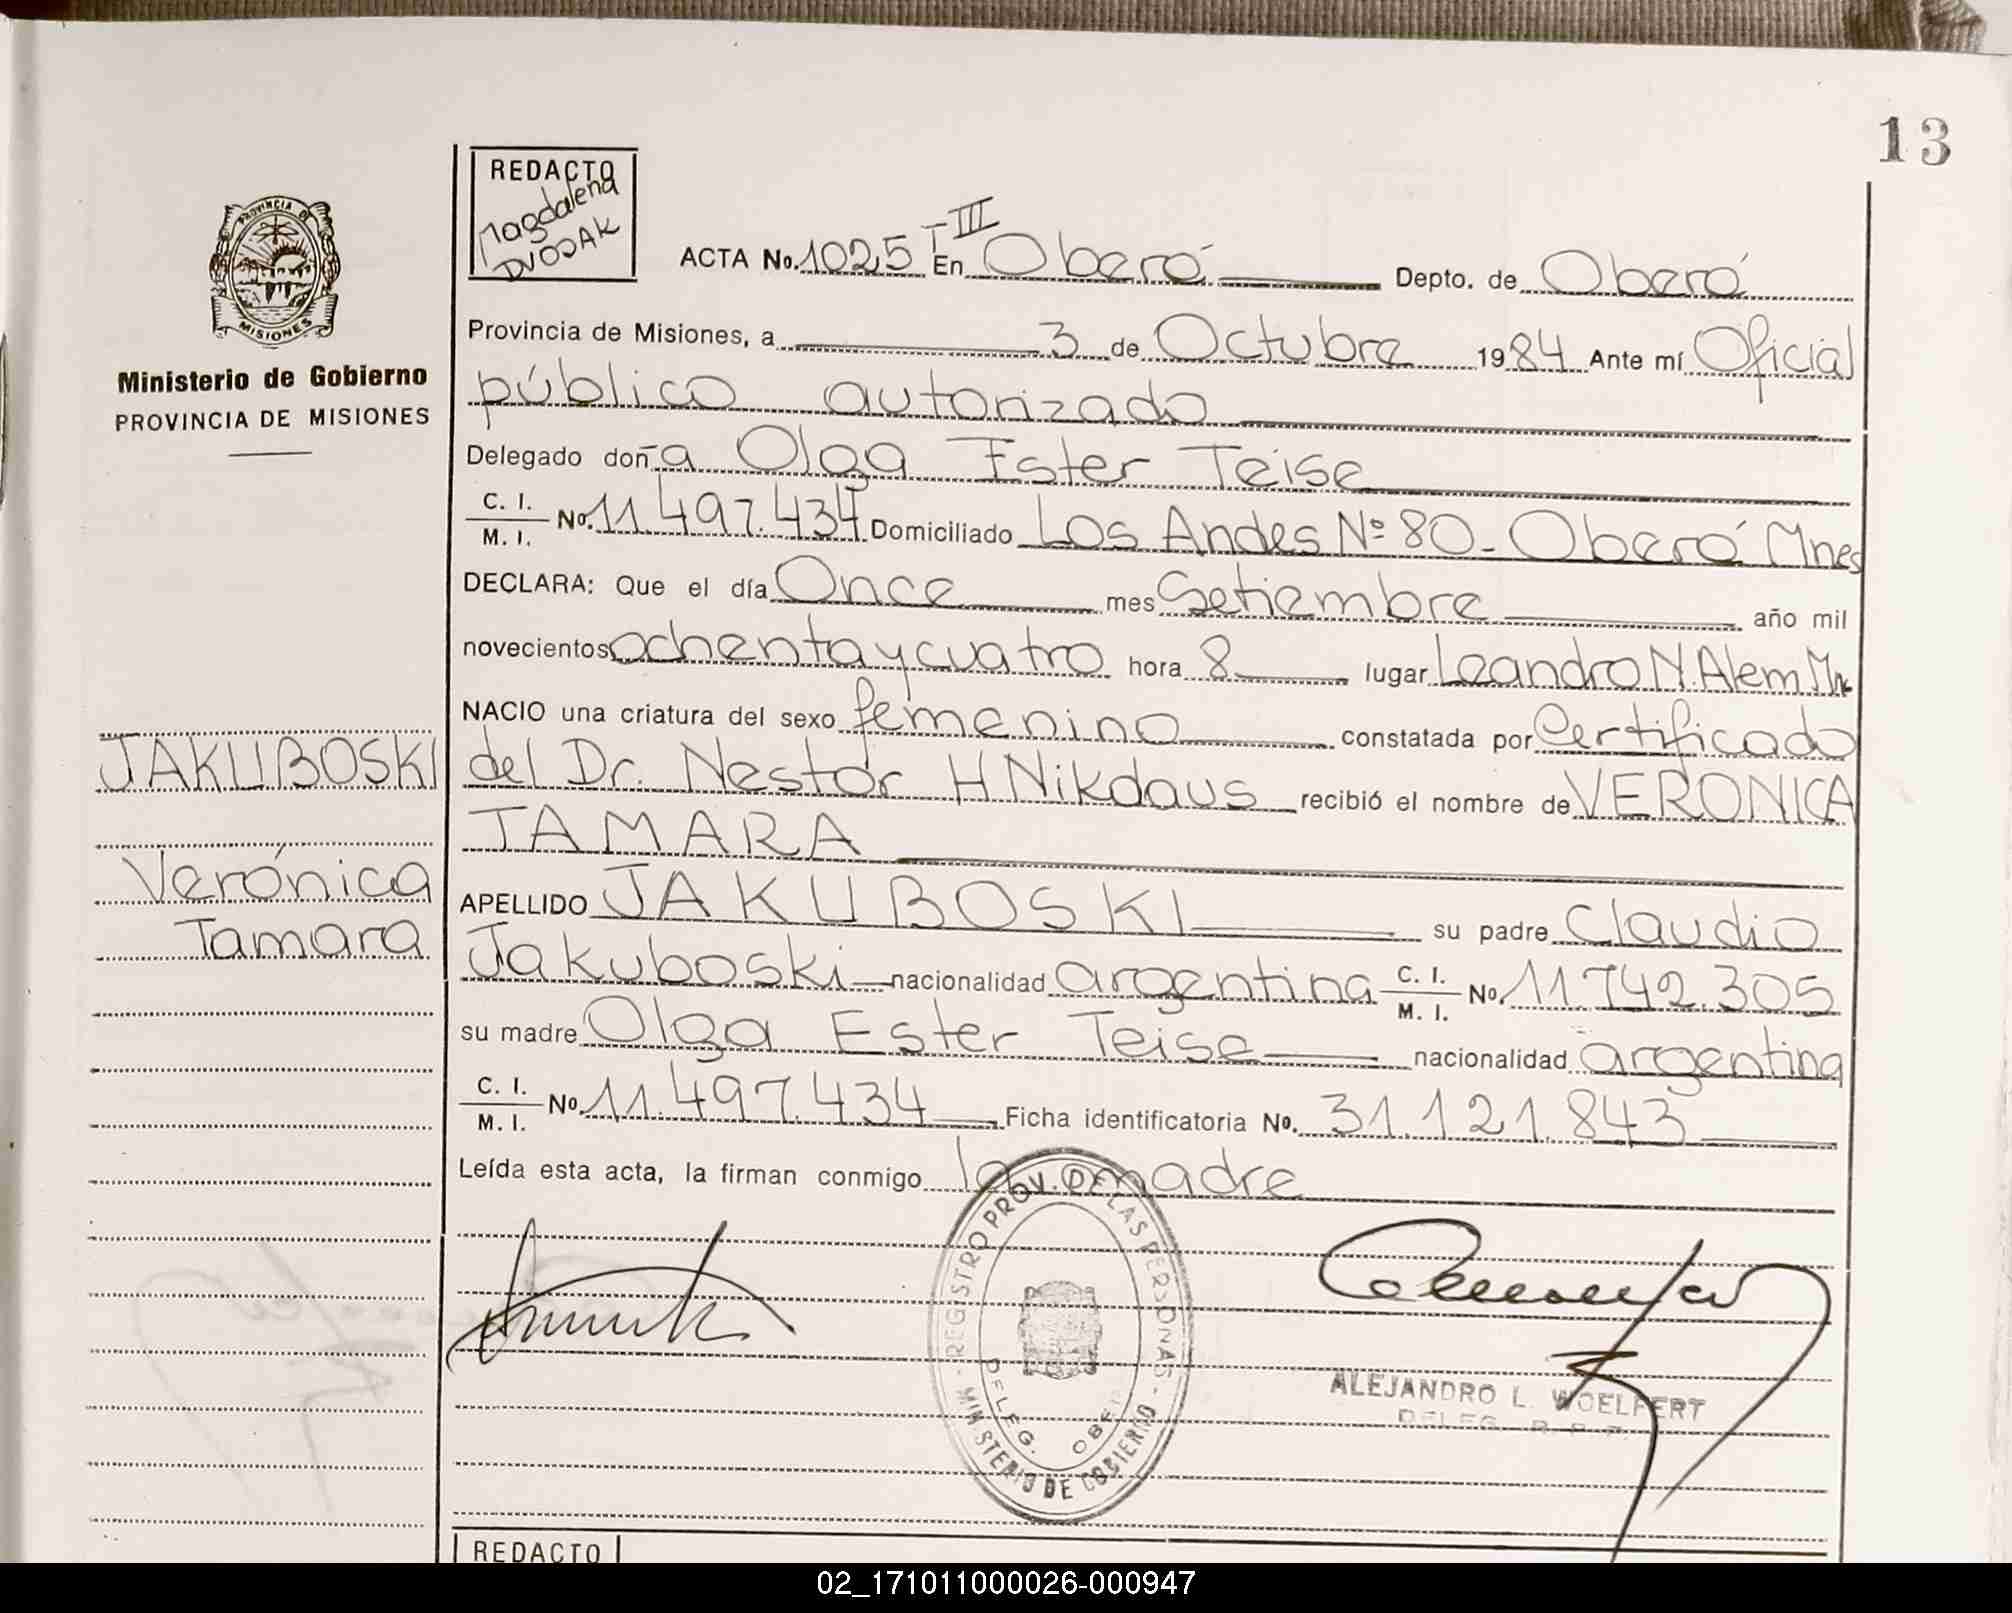 13
REDACTO
Magdalena
DVOJAK
PROVINCIA DE
MISIONES
Ministerio de Gobierno
PROVINCIA DE MISIONES
ACTA No. 1025 T III En Oberá Depto. de Oberá
Provincia de Misiones, a 3 de Octubre 1984 Ante mí Oficial
público autorizado
Delegado doña Olga Ester Teise
C. I.
M. I. No. 11.497.434 Domiciliado Los Andes Nº 80 - Oberá Mnes
DECLARA: Que el día Once mes Setiembre año mil
novecientos ochenta y cuatro hora 8 lugar Leandro N. Alem Mn
NACIO una criatura del sexo femenino constatada por Certificado
del Dr. Nestor H Nikdaus recibió el nombre de VERONICA
TAMARA
JAKUBOSKI
Verónica
Tamara
APELLIDO JAKUBOSKI su padre Claudio
Jakuboski nacionalidad argentina C. I. M. I. No. 11.742.305
su madre Olga Ester Teise nacionalidad argentina
C. I.
M. I. No. 11.497.434 Ficha identificatoria No. 31.121.843
Leída esta acta, la firman conmigo la madre
REGISTRO PROV. DE LAS PERSONAS - MINISTERIO DE GOBIERNO -
DELEG. OBE
ALEJANDRO L. WOELFERT
DELEG. R. P. P.
REDACTO
02_171011000026-000947